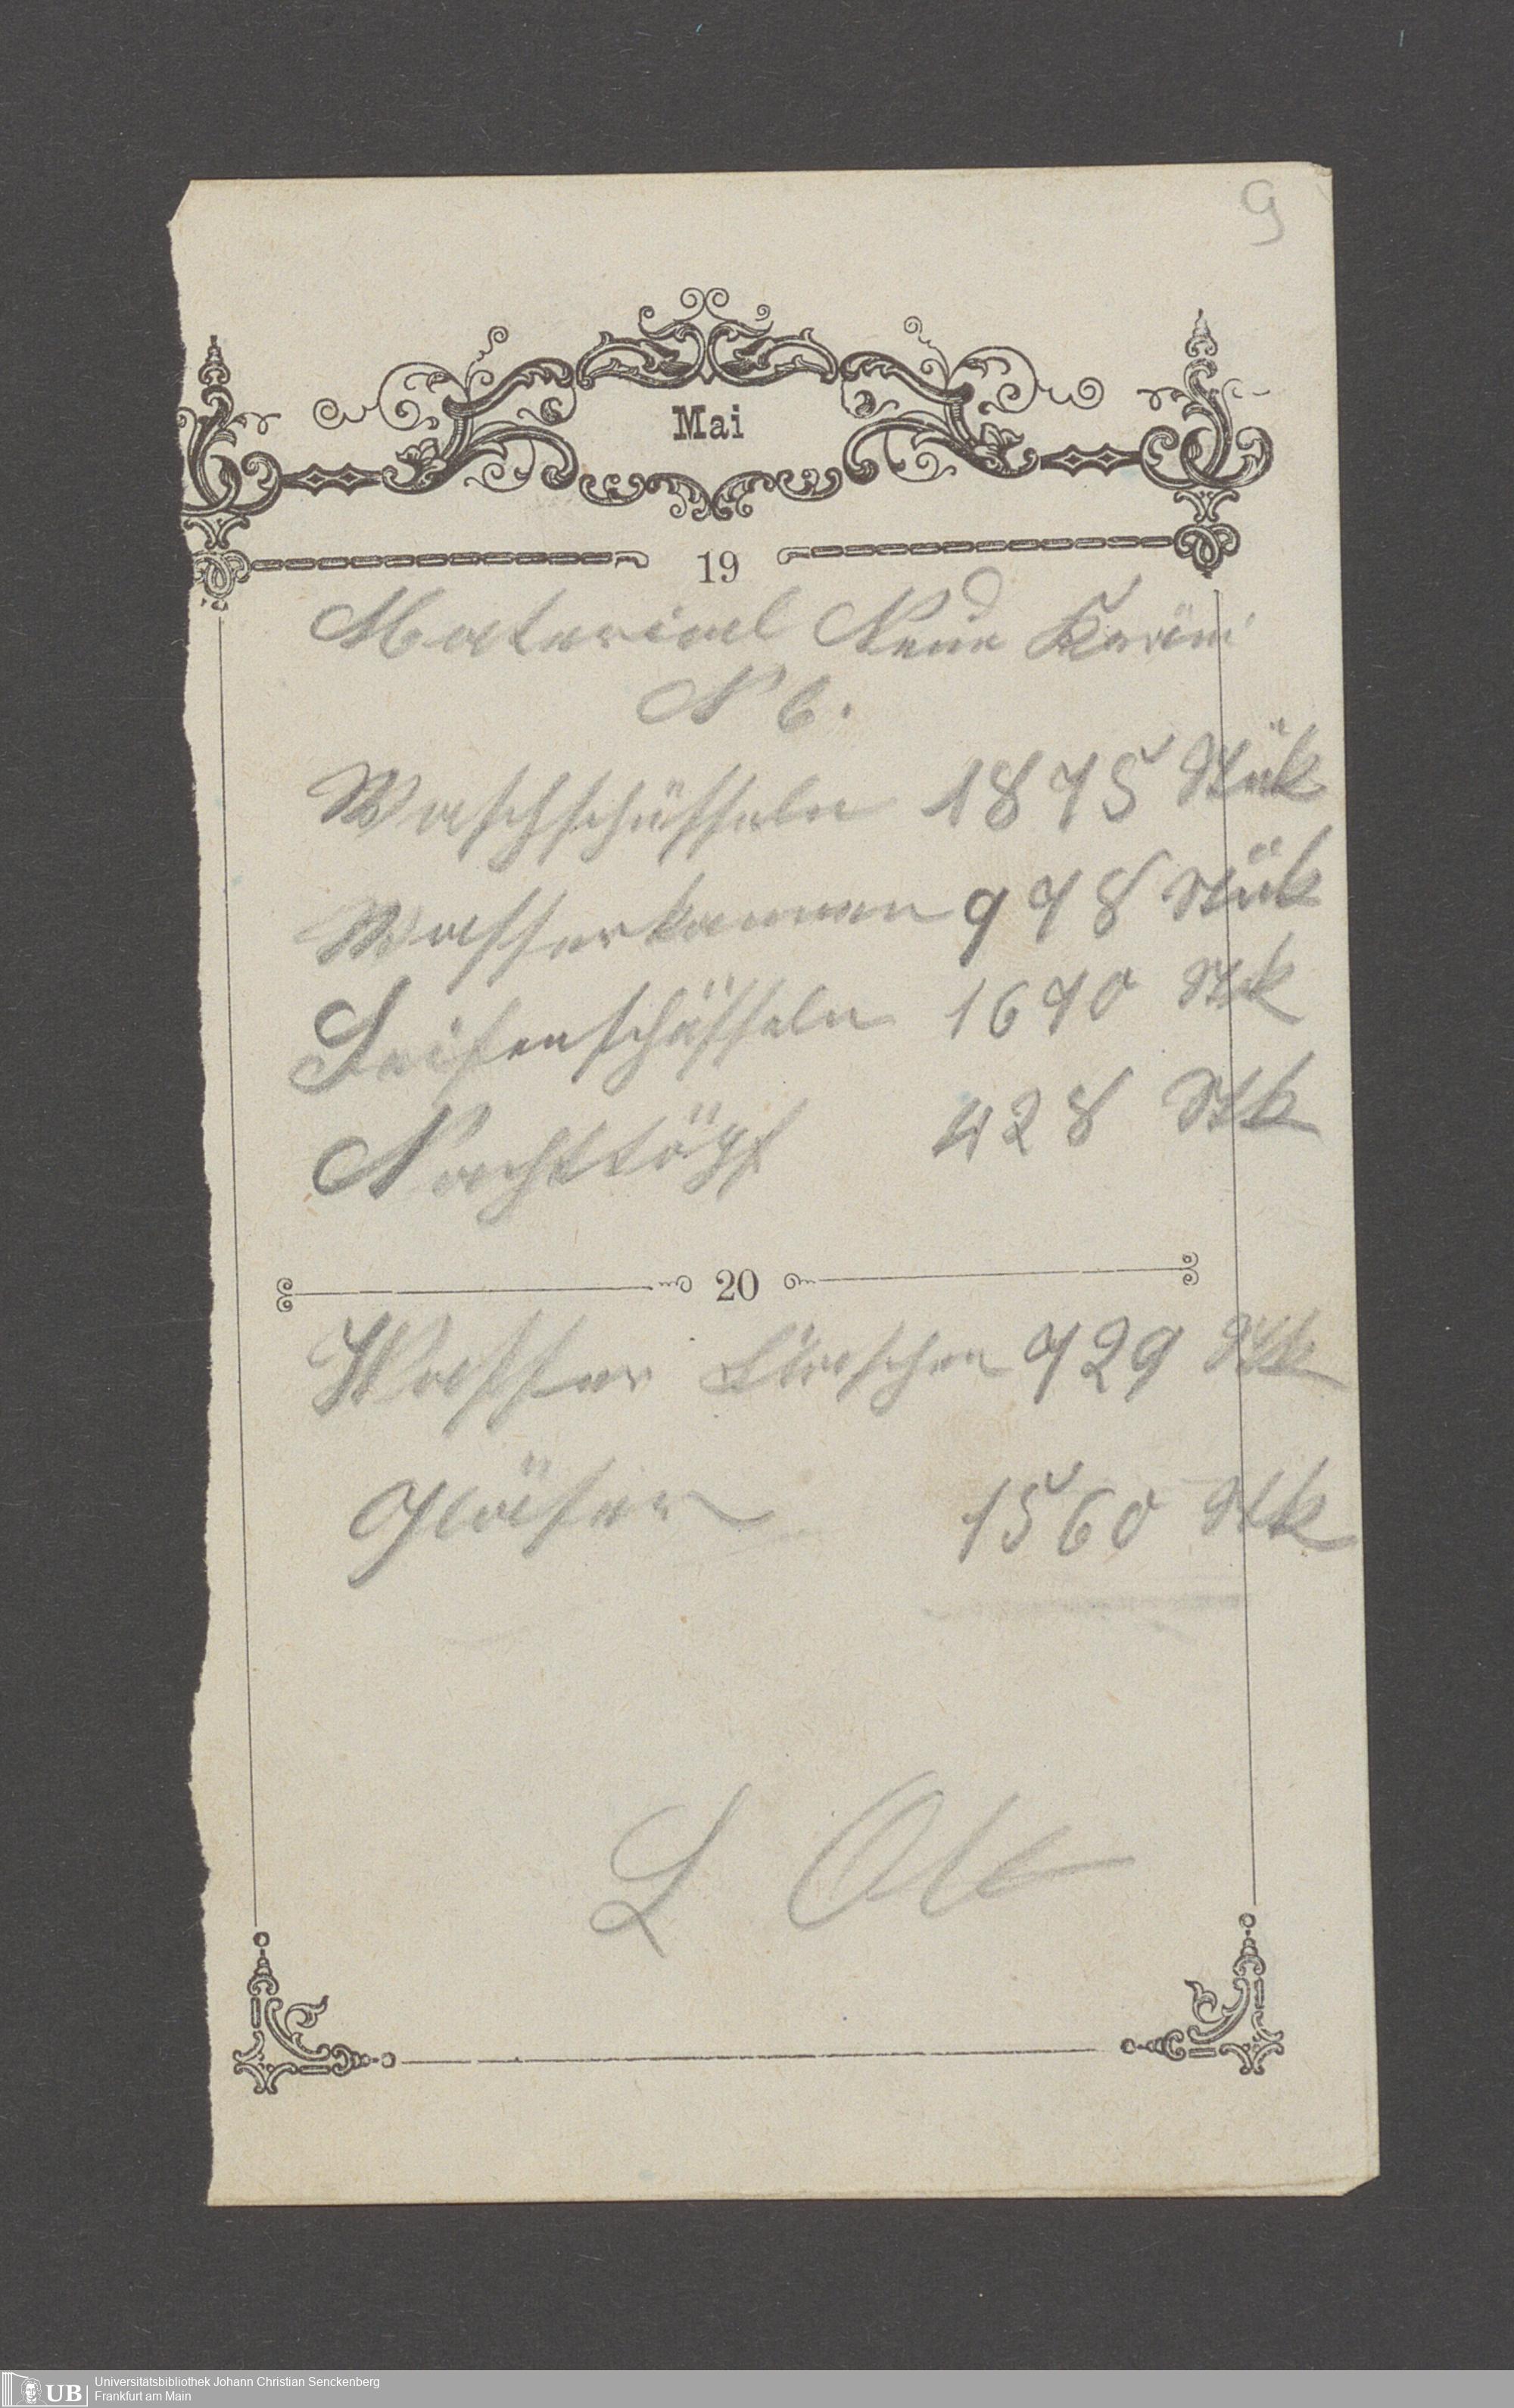 9
Mai
19
Material Neue Kräm
N 6.
Waschschüsseln 1875 Stük
Wasserkannen 978 Stük
Seifenschüsseln 1670 Stk
Nachttöpf 428 Stk
20
Wasser Flaschen 729 Stk
Gläser 1560 Stk
L Ott
UB Universitätsbibliothek Johann Christian Senckenberg
Frankfurt am Main